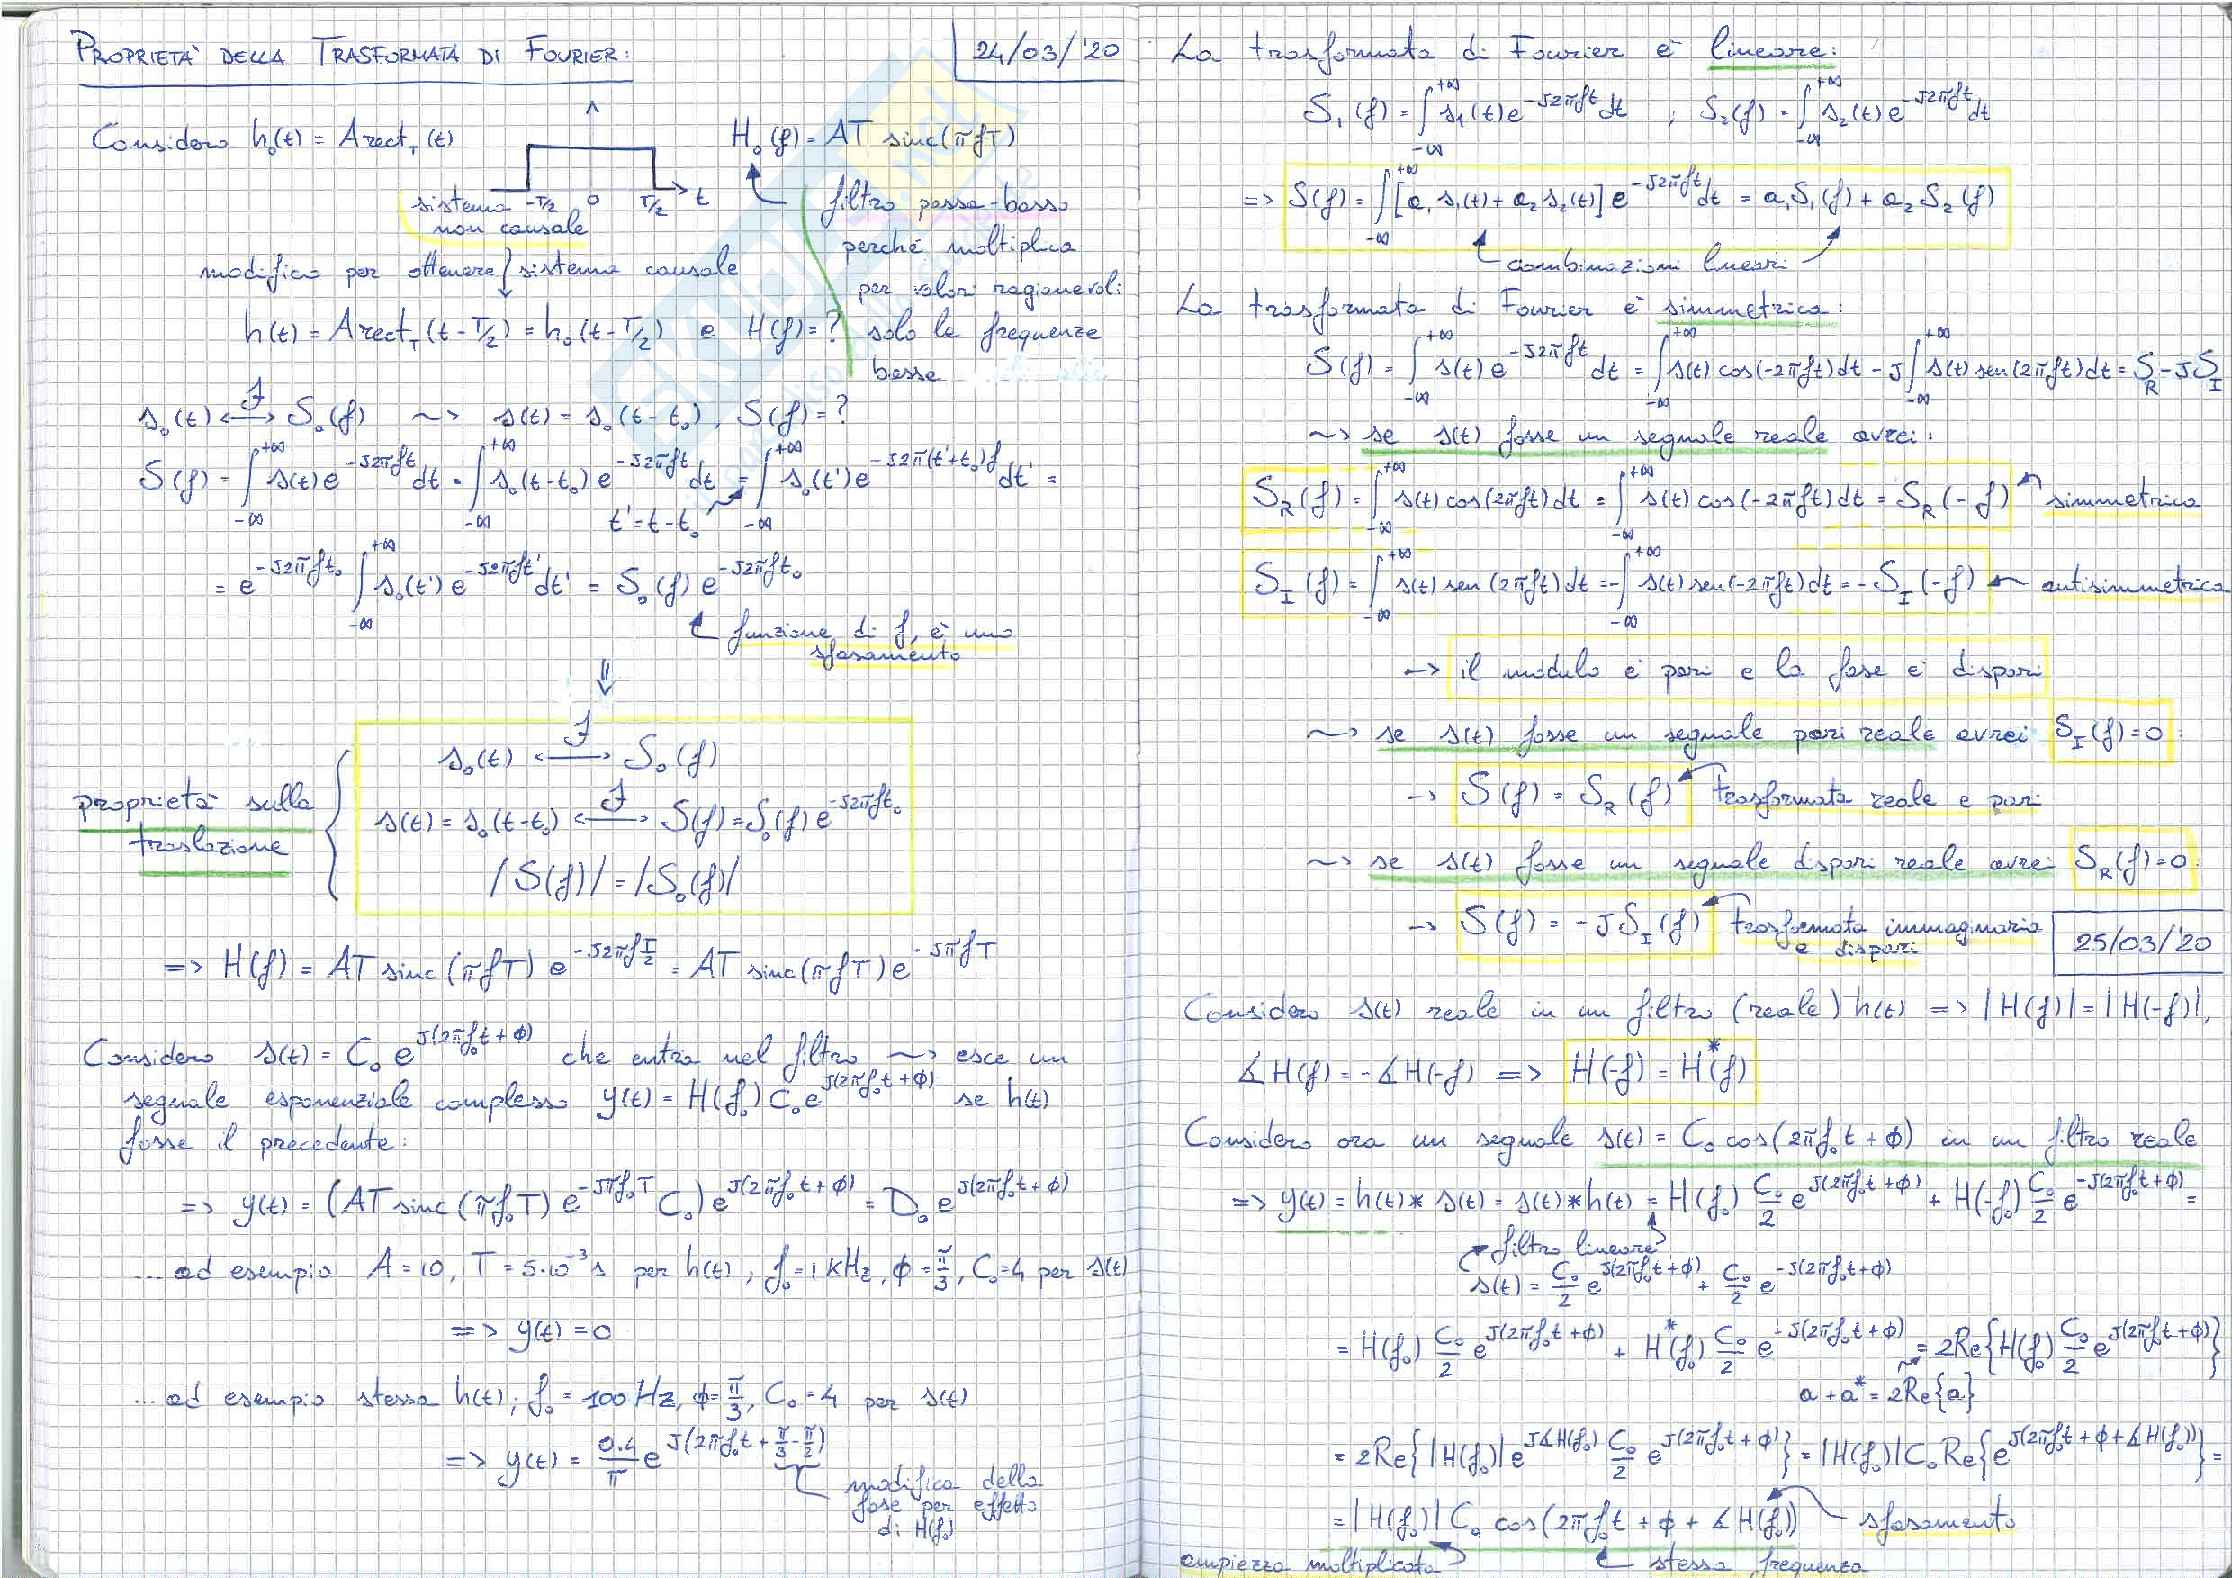 PROPRIETÀ DELLA TRASFORMATA DI FOURIER:
24/03/'20
Considero h₀(t) = A rect_T (t)
H₀(f) = AT sinc(πfT)
-T/2 0 T/2 t
sistema
non causale
filtro passa-basso
perché moltiplica
per valori ragionevoli
solo le frequenze
basse
modifico per ottenere sistema causale
h(t) = A rect_T (t - T/2) = h₀(t - T/2) e H(f) = ?
s₀(t) <—ℱ—> S₀(f) ~> s(t) = s₀(t - t₀), S(f) = ?
S(f) = ∫_{-∞}^{+∞} s(t) e^{-J2πft} dt = ∫_{-∞}^{+∞} s₀(t-t₀) e^{-J2πft} dt = ∫_{-∞}^{+∞} s₀(t') e^{-J2π(t'+t₀)f} dt' =
t' = t - t₀
= e^{-J2πft₀} ∫_{-∞}^{+∞} s₀(t') e^{-J2πft'} dt' = S₀(f) e^{-J2πft₀}
funzione di f, è uno
sfasamento
⇓
proprietà sulla
traslazione
s₀(t) <—ℱ—> S₀(f)
s(t) = s₀(t-t₀) <—ℱ—> S(f) = S₀(f) e^{-J2πft₀}
|S(f)| = |S₀(f)|
=> H(f) = AT sinc(πfT) e^{-J2πf T/2} = AT sinc(πfT) e^{-JπfT}
Considero s(t) = C₀ e^{J(2πf₀t + φ)} che entra nel filtro ~> esce un
segnale esponenziale complesso y(t) = H(f₀) C₀ e^{J(2πf₀t + φ)} se h(t)
fosse il precedente:
=> y(t) = (AT sinc(πf₀T) e^{-Jπf₀T} C₀) e^{J(2πf₀t + φ)} = D₀ e^{J(2πf₀t + φ)}
... ad esempio A = 10, T = 5·10⁻³ s per h(t), f₀ = 1 kHz, φ = π/3, C₀ = 4 per s(t)
=> y(t) = 0
... ad esempio stessa h(t); f₀ = 100 Hz, φ = π/3, C₀ = 4 per s(t)
=> y(t) = 0.4/π e^{J(2πf₀t + π/3 - π/2)}
modifica della
fase per effetto
di H(f₀)
La trasformata di Fourier è lineare:
S₁(f) = ∫_{-∞}^{+∞} s₁(t) e^{-J2πft} dt ; S₂(f) = ∫_{-∞}^{+∞} s₂(t) e^{-J2πft} dt
=> S(f) = ∫_{-∞}^{+∞} [a₁ s₁(t) + a₂ s₂(t)] e^{-J2πft} dt = a₁S₁(f) + a₂S₂(f)
combinazioni lineari
La trasformata di Fourier è simmetrica:
S(f) = ∫_{-∞}^{+∞} s(t) e^{-J2πft} dt = ∫_{-∞}^{+∞} s(t) cos(-2πft) dt - J ∫_{-∞}^{+∞} s(t) sen(2πft) dt = S_R - J S_I
~> se s(t) fosse un segnale reale avrei:
S_R(f) = ∫_{-∞}^{+∞} s(t) cos(2πft) dt = ∫_{-∞}^{+∞} s(t) cos(-2πft) dt = S_R(-f) simmetrica
S_I(f) = ∫_{-∞}^{+∞} s(t) sen(2πft) dt = -∫_{-∞}^{+∞} s(t) sen(-2πft) dt = -S_I(-f) antisimmetrica
-> il modulo è pari e la fase è dispari
~> se s(t) fosse un segnale pari reale avrei S_I(f) = 0:
-> S(f) = S_R(f) trasformata reale e pari
~> se s(t) fosse un segnale dispari reale avrei S_R(f) = 0:
-> S(f) = -J S_I(f) trasformata immaginaria
e dispari
25/03/'20
Considero s(t) reale in un filtro (reale) h(t) => |H(f)| = |H(-f)|,
∡H(f) = -∡H(-f) => H(-f) = H*(f)
Considero ora un segnale s(t) = C₀ cos(2πf₀t + φ) in un filtro reale
=> y(t) = h(t) * s(t) = s(t) * h(t) = H(f₀) C₀/2 e^{J(2πf₀t + φ)} + H(-f₀) C₀/2 e^{-J(2πf₀t + φ)} =
filtro lineare
s(t) = C₀/2 e^{J(2πf₀t + φ)} + C₀/2 e^{-J(2πf₀t + φ)}
= H(f₀) C₀/2 e^{J(2πf₀t + φ)} + H*(f₀) C₀/2 e^{-J(2πf₀t + φ)} = 2Re{H(f₀) C₀/2 e^{J(2πf₀t + φ)}}
a + a* = 2Re{a}
= 2Re{|H(f₀)| e^{J∡H(f₀)} C₀/2 e^{J(2πf₀t + φ)}} = |H(f₀)| C₀ Re{e^{J(2πf₀t + φ + ∡H(f₀))}} =
= |H(f₀)| C₀ cos(2πf₀t + φ + ∡H(f₀)) sfasamento
ampiezza moltiplicata stessa frequenza